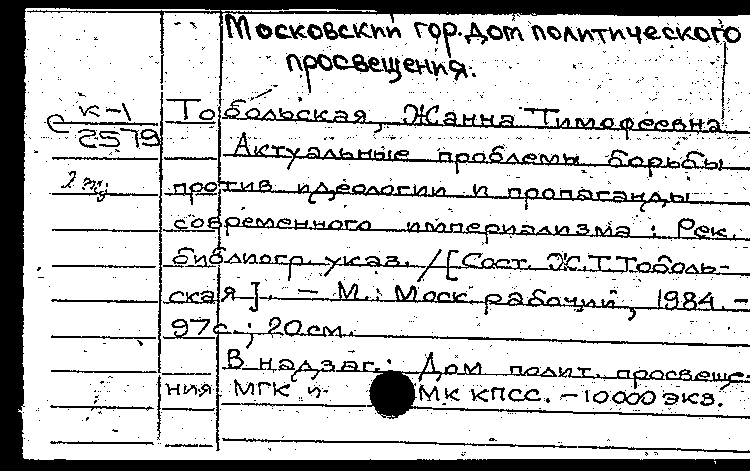 Московский гор. дом политического
просвещения.
К-1
С 2579
Тобольская, Жанна Тимофеевна
Актуальные проблемы борьбы
против идеологии и пропаганды
современного империализма : Рек.
библиогр. указ. / [Сост. Ж.Т. Тоболь-
ская]. – М. : Моск. рабочий, 1984. –
97с. ; 20 см.
В надзаг. : Дом полит. просвеще-
ния МГК и МК КПСС. – 10000 экз.